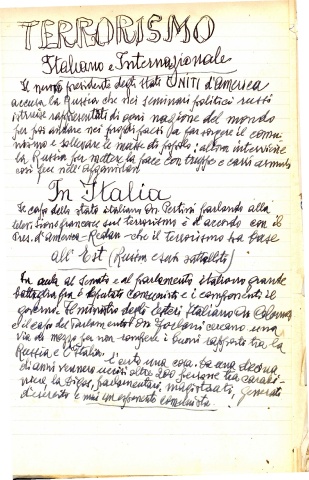 TERRORISMO
Italiano e Internazionale
Il nuovo presidente degli Stati UNITI d'America
accusa la Russia che nei seminari politici russi
istruisce rappresentanti di ogni nazione del mondo
per poi andare nei propri paesi fa far sorgere il comu-
nismo e sollevare le masse di popolo; allora interviene
la Russia per mettere la pace con truppe e carri armati
così fece nell'Afganistan
In Italia
Il capo dello stato italiano On Pertini parlando alla
televisione francese sul terrorismo è d'accordo con il
Pres. d'America - Regan - che il terrorismo ha base
all'Est (Russia e suoi satelliti)
In aula al Senato e al parlamento italiano grande
battaglia fra i deputati comunisti e i componenti il
governo. Il ministro degli Esteri Italiano on Colombo
e il capo del Parlamento l'On Forlani cercano una
via di mezzo per non rompere i buoni rapporti tra la
Russia e l'Italia. L'è certo una cosa. Da una decina
di anni vennero uccisi oltre 200 persone tra carabi-
nieri, la Digos, parlamentari, magistrati, generali
d'esercito e mai un esponente comunista